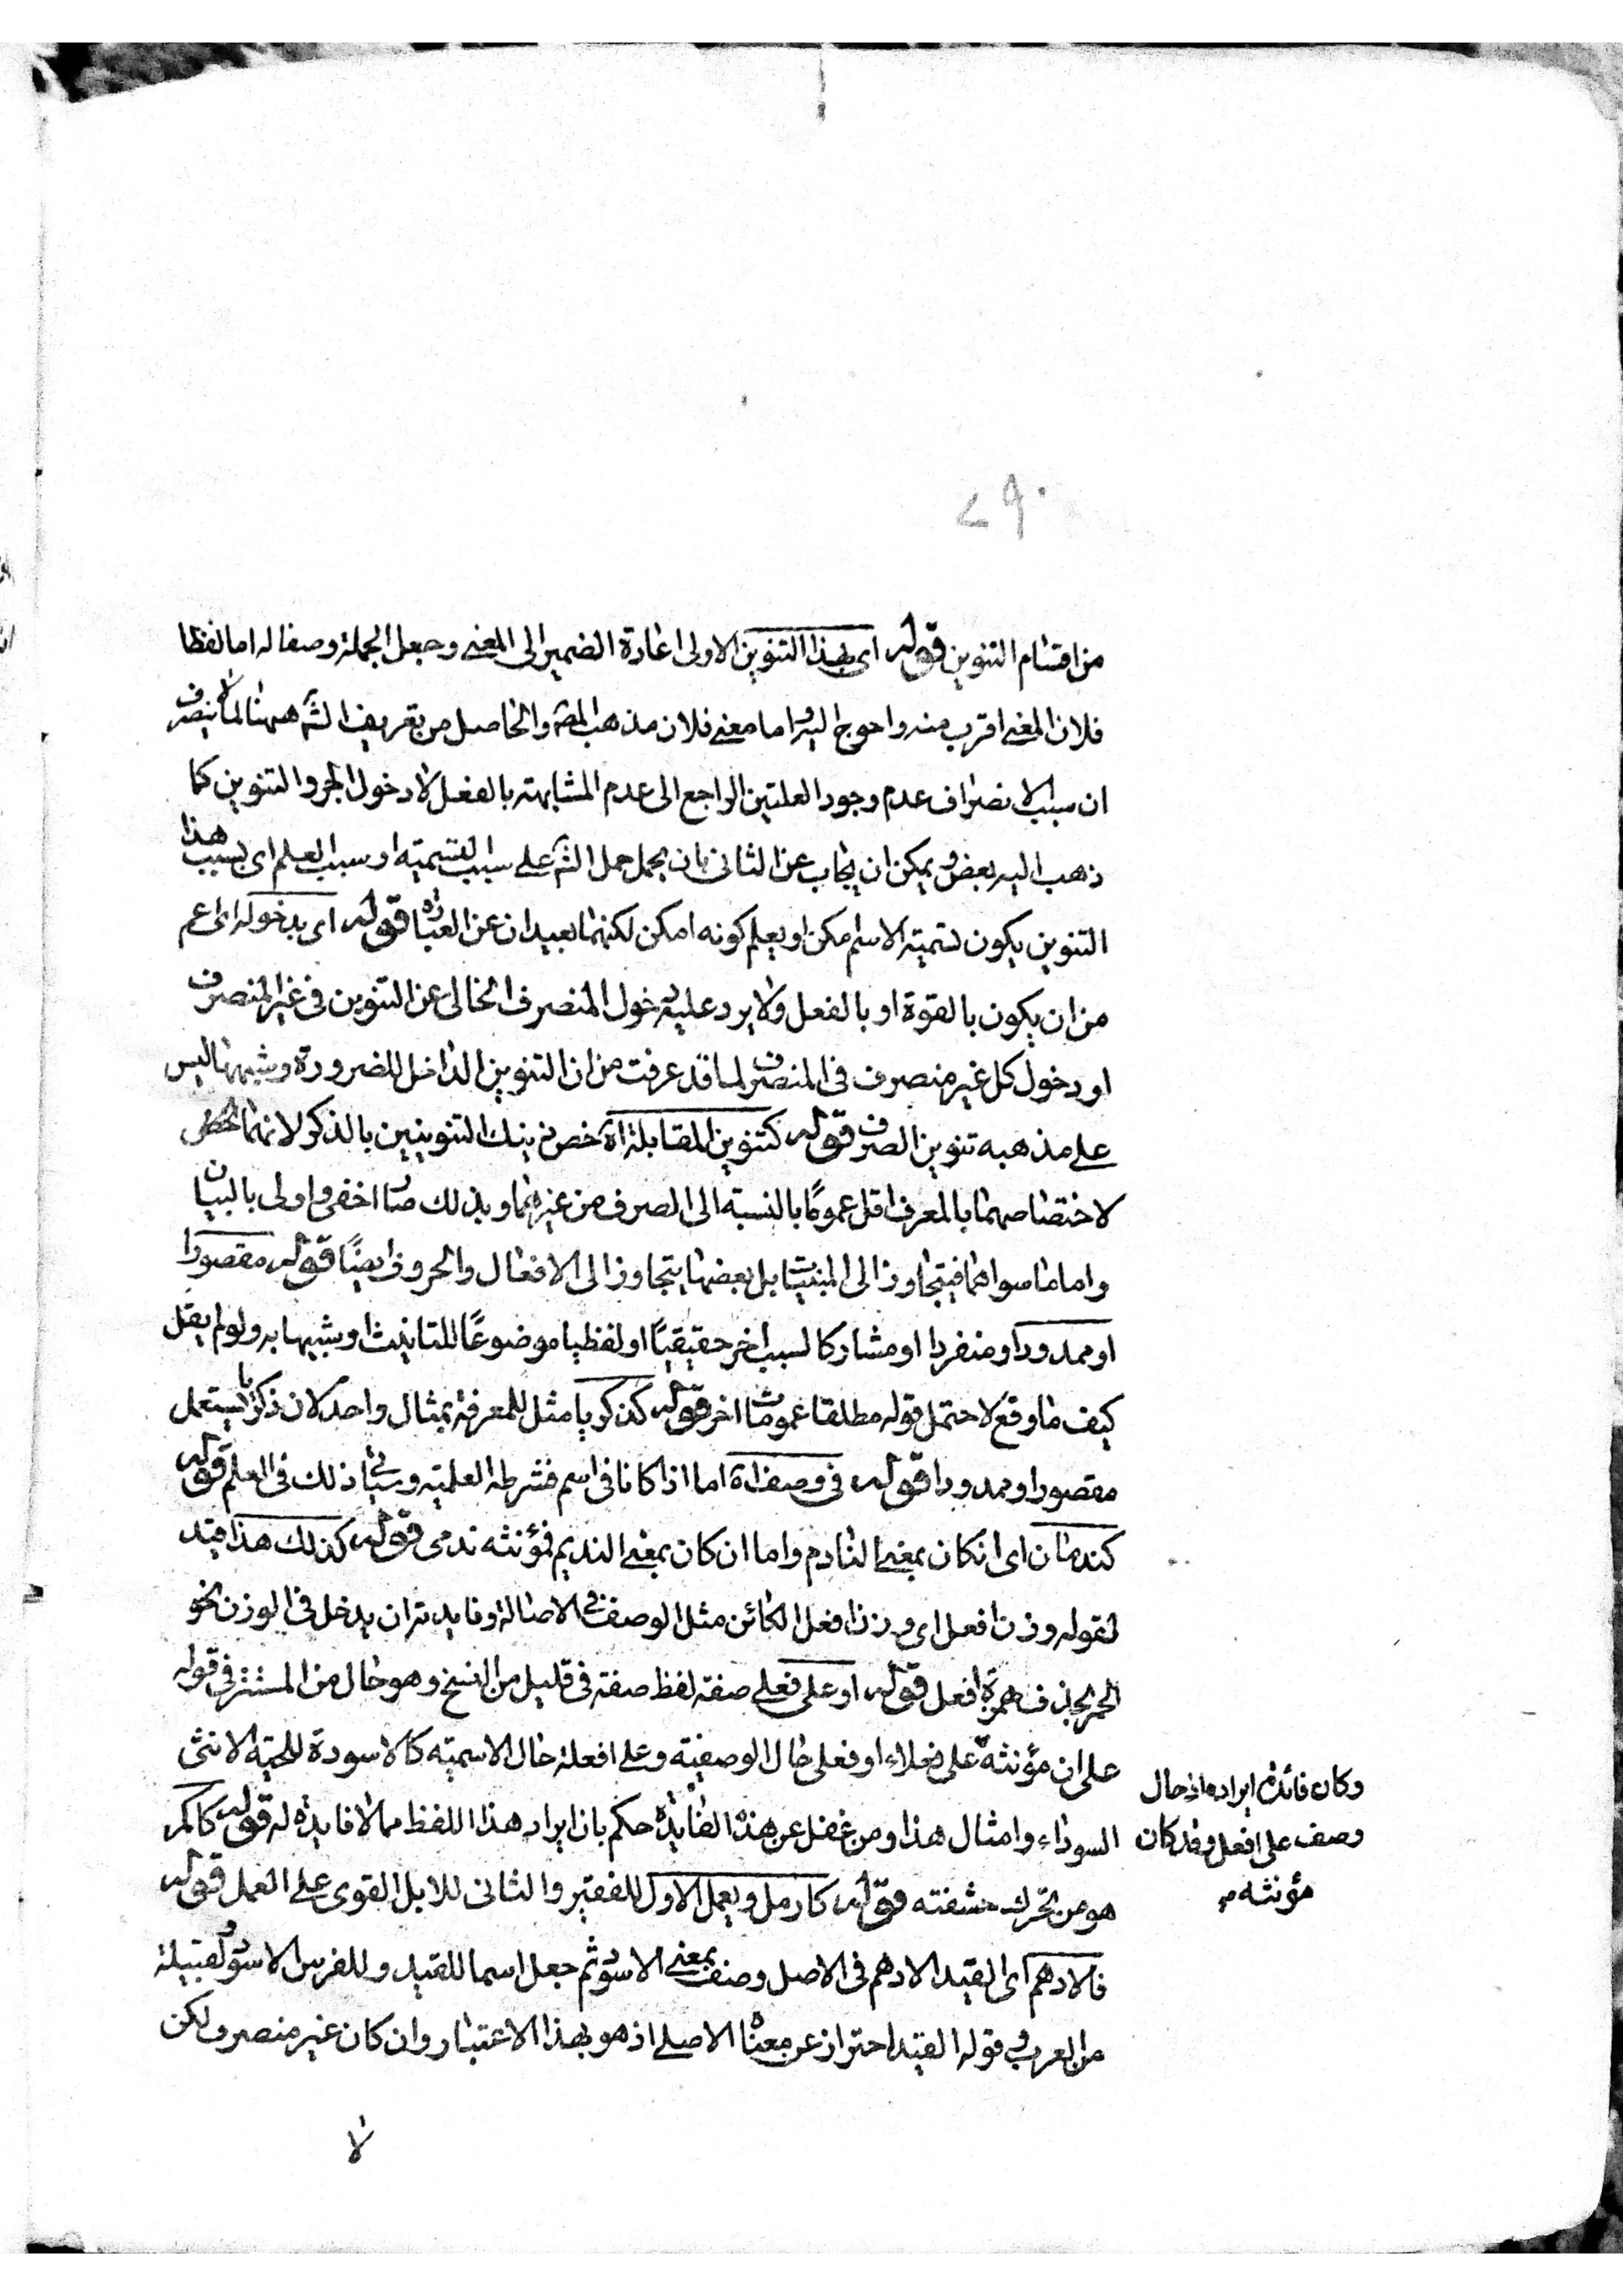 من اقسام التنوين قوله اى بهذا التنوين الاولى اعادة الضمير الى المعنى وجعل الجملة وصفا له اما لفظا
فلان المعنى اقرب منه واحوج اليه واما معنى فلان مذهب المصـ والحاصل من تعريف الشـ ههنا لما لا ينصرف
ان سبب الانصراف عدم وجود العلتين الراجع الى عدم المشابهته بالفعل لا دخول الجر والتنوين كما
ذهب اليه بعض ويمكن ان يجاب عن الثانى بان يحمل حمل الشـ على سبب التسميته او سبب العلم اى بسبب هذا
التنوين يكون تسميته الاسم امكن او يعلم كونه امكن لكنهما بعيدان عن العبارة قوله اى بدخوله اى اعم
من ان يكون بالقوة او بالفعل ولا يرد عليه دخول المنصرف الخالى عن التنوين فى غير المنصرف
او دخول كل غير منصرف فى المنصرف لما قد عرفت من ان التنوين الداخل للضرورة وشبهها ليس
على مذهبه تنوين الصرف قوله كتنوين المقابلة اه خص ذينك التنوينين بالذكر لانهما
لاختصاصهما بالمعرف اقل عموما بالنسبته الى الصرف من غيرهما وبذلك صار اخفى واولى بالبيان
واما ما سواهما فيتجاوز الى المبنيات بل بعضها يتجاوز الى الافعال والحروف ايضًا قوله مقصورا
او ممدودا ومنفردا او مشاركا لسبب اخر حقيقيًا او لفظيا موضوعًا للتانيث او شبيها به ولو لم يقل
كيف ما وقع لاحتمل قوله مطلقا عمومات اخر قوله كذكريا مثل للمعرفة بمثال واحد لان ذكريا يستعمل
مقصورا وممدودا قوله فى وصف اه اما اذا كانا فى اسم فشرطه العلميته وسياتى ذلك فى العلم قوله
كندمان اى ان كان بمعنى النادم واما ان كان بمعنى النديم فمؤنثه ندمى قوله كذلك هذا قيد
لقوله وزن افعل اى وزن افعل الكائن مثل الوصف فى الاصالة وفايدته ان يدخل فى الوزن نحو
الحمر بحذف همزة افعل قوله او على فعلى صفته لفظ صفته فى قليل من النسخ وهو حال من المستتر فى قوله
على ان مؤنثه على فعلاء او فعلى حال الوصفيته وعلى افعلة حال الاسميته كالاسودة للحيته الانثى
السوداء وامثال هذا ومن غفل عن هذه الفايدة حكم بان ايراد هذا اللفظ مما لا فايدة له قوله كاكمر
هو من تحرك حشفته قوله كارمل ويعمل الاول للفقير والثانى للابل القوى على العمل قوله
فالادهم اى القيد الادهم فى الاصل وصف بمعنى الاسود ثم جعل اسما للقيد وللفرس الاسود ولقبيلة
من العرب وقوله القيد احتراز عن معناه الاصلى اذ هو بهذا الاعتبار وان كان غير منصرف لكن
لا
وكان فائدة ايراده اذ حال
وصف على افعل وقد كان
مؤنثه